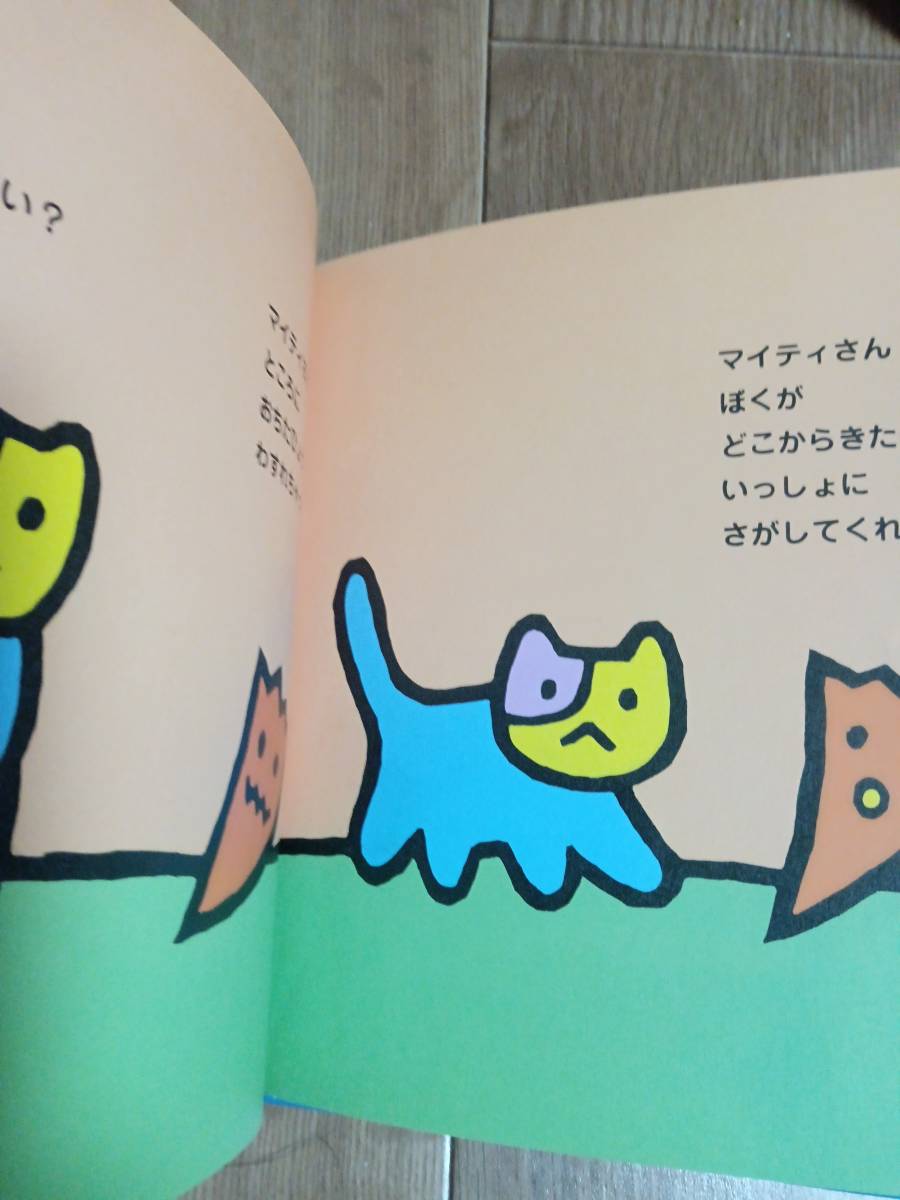 い？
マイティ
ところに
おちた
わすれちゃ
マイティさん
ぼくが
どこからきた
いっしょに
さがしてくれ